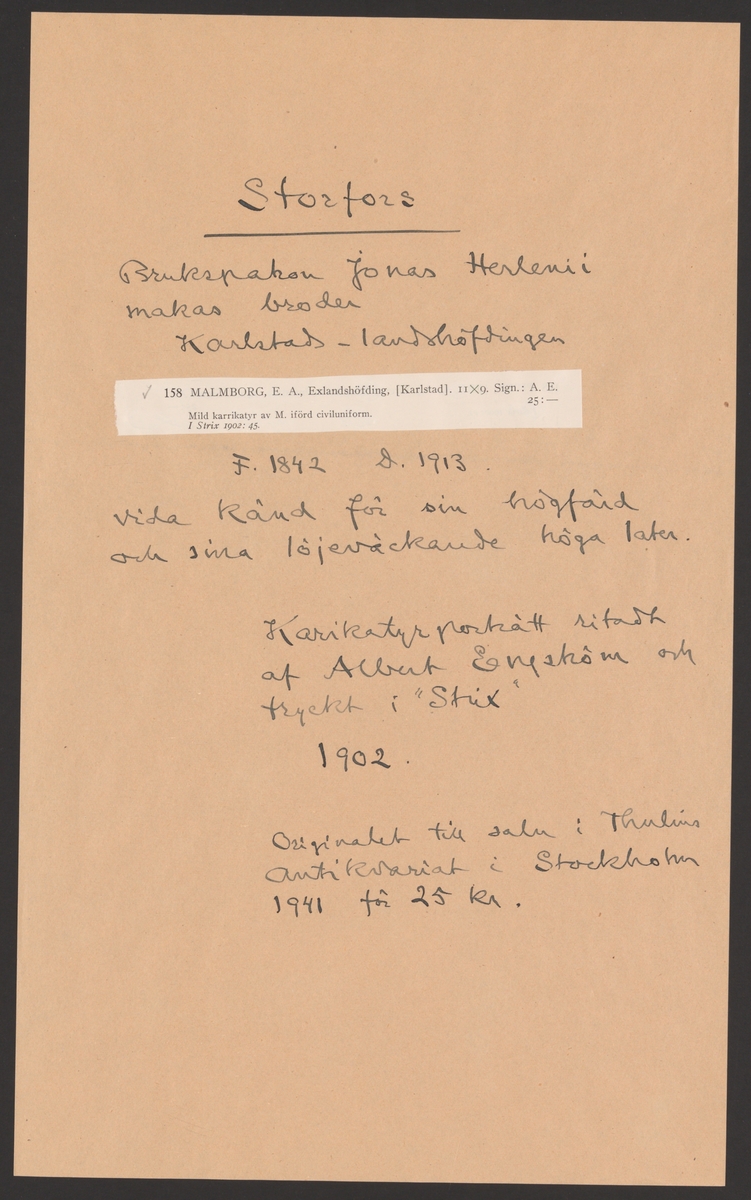 Storfors
Brukspatron Jonas Herlenii
makas broder
Karlstads-landshöfdingen
✓ 158 MALMBORG, E. A., Exlandshöfding, [Karlstad]. 11×9. Sign.: A. E.
25:—
Mild karrikatyr av M. iförd civiluniform.
I Strix 1902: 45.
F. 1842 D. 1913.
vida känd för sin högfärd
och sina löjeväckande höga later.
Karikatyrporträtt ritadt
af Albert Engström och
tryckt i "Strix"
1902.
Originalet till salu i Thulins
Antikvariat i Stockholm
1941 för 25 kr.